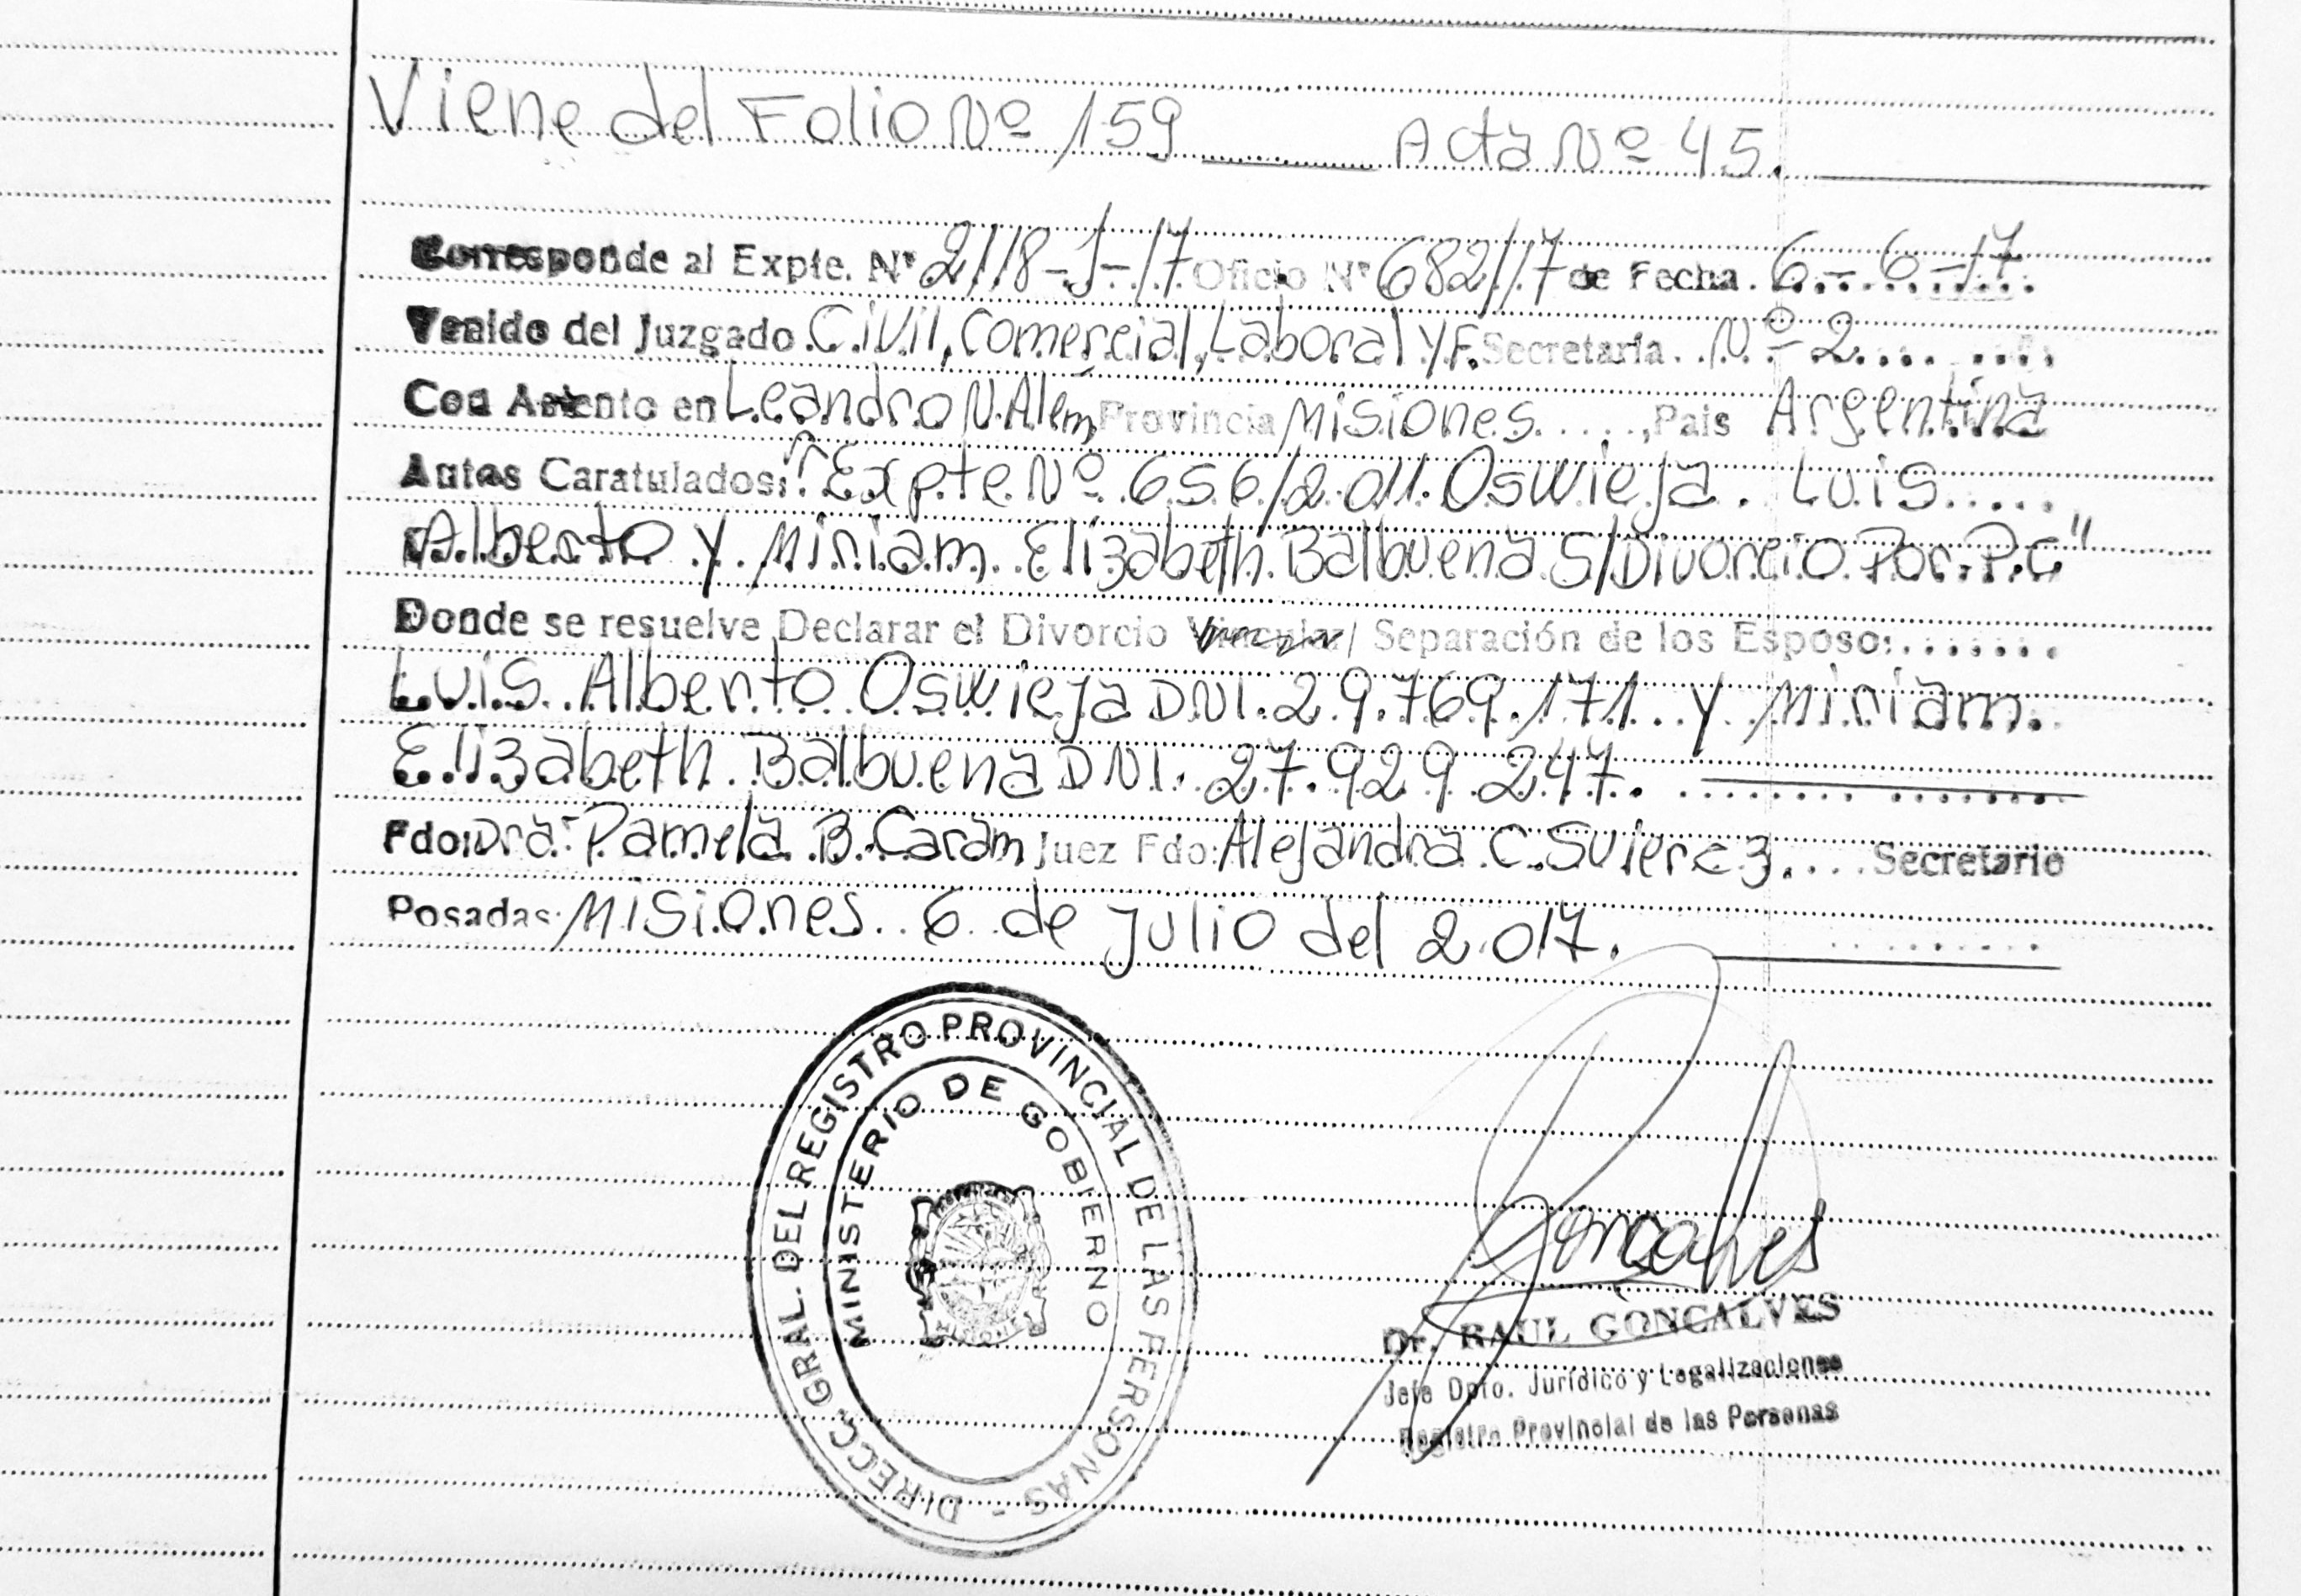 Viene del Folio Nº 159 Acta Nº 45.
Corresponde al Expte. Nº 2118-J-17 Oficio Nº 682/17 de Fecha 6-6-17
Venido del Juzgado Civil, Comercial, Laboral y F. Secretaría Nº 2
Con Asiento en Leandro N. Alem Provincia Misiones, Pais Argentina
Autos Caratulados: "Expte Nº 656/2.011. Oswieja Luis
Alberto y Miriam Elizabeth Balbuena S/Divorcio Por P.C"
Donde se resuelve Declarar el Divorcio Vincular / Separación de los Esposo:
Luis Alberto Oswieja DNI. 29.769.171 y Miriam
Elizabeth Balbuena DNI. 27.929 247.
Fdo: Dra. Pamela B. Caram Juez Fdo: Alejandra C. Secretario
Posadas Misiones 6 de Julio del 2.017.
DIRECC. GRAL. DEL REGISTRO PROVINCIAL DE LAS PERSONAS -
MINISTERIO DE GOBIERNO
MISIONES
Gonçalves
Dr. RAUL GONCALVES
Jefe Dpto. Jurídico y Legalizaciones
Registro Provincial de las Personas